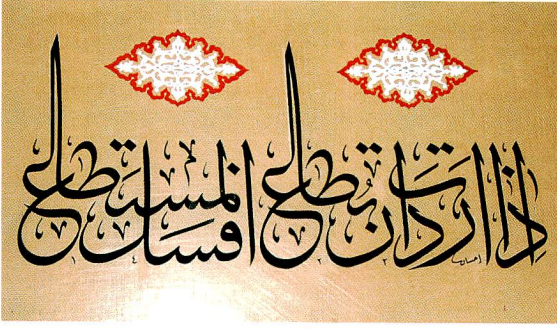 إِذا اردت ان تُطاع فسل المستطاع